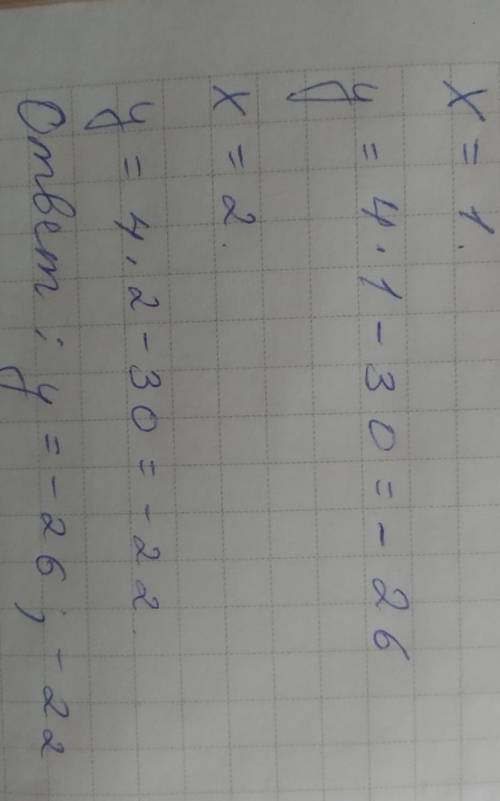 x = 1.
y = 4·1-30=-26
x = 2.
y = 4·2-30=-22.
Ответ: y=-26; -22